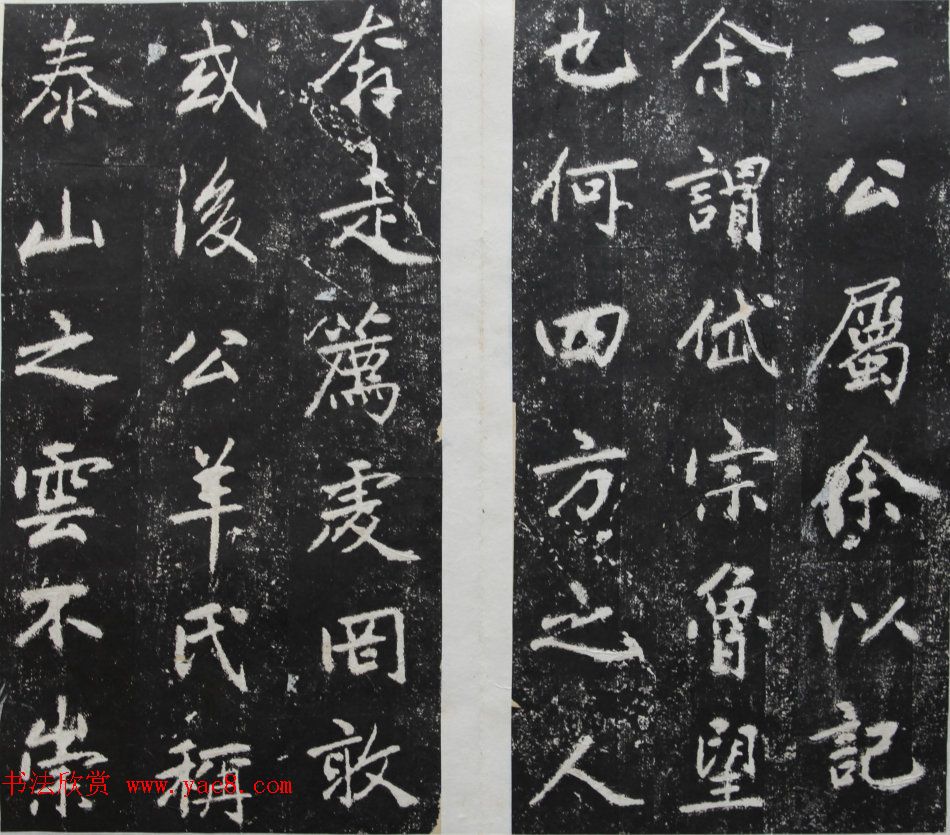 二公屬余以記
余謂岱宗魯望
也何四方之人
奔走篤虔罔敢
或後公羊氏稱
泰山之雲不崇
书法欣赏 www.yac8.com